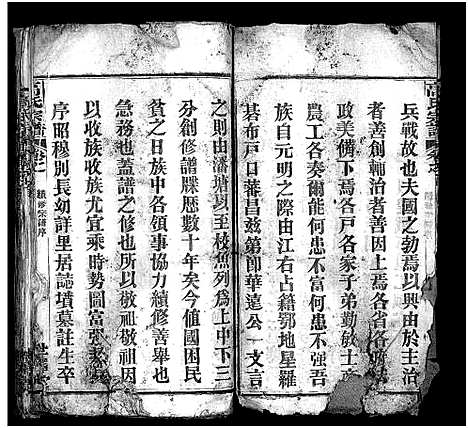 兵戰故也夫國之勃焉以興由於主治
者善創輔治者善因上焉各省各
政美備下焉各戶各家子弟勤敏士商
農工各奏爾能何患不富何患不强吾
族自元明之際由江右占籍鄂地星羅
碁布戶口蕃昌兹第即華遠公一支言
之則由潘塘以至枝魚列爲上中下三
分創修譜牒歷數十年矣今值國困民
貧之日族中各領事協力續修善舉也
急務也蓋譜之修所以敬祖敬宗
以收族收族尤宜乘時勢圖富强
序昭穆別長幼詳里居誌墳墓註生卒
高氏宗譜
續修宗譜序